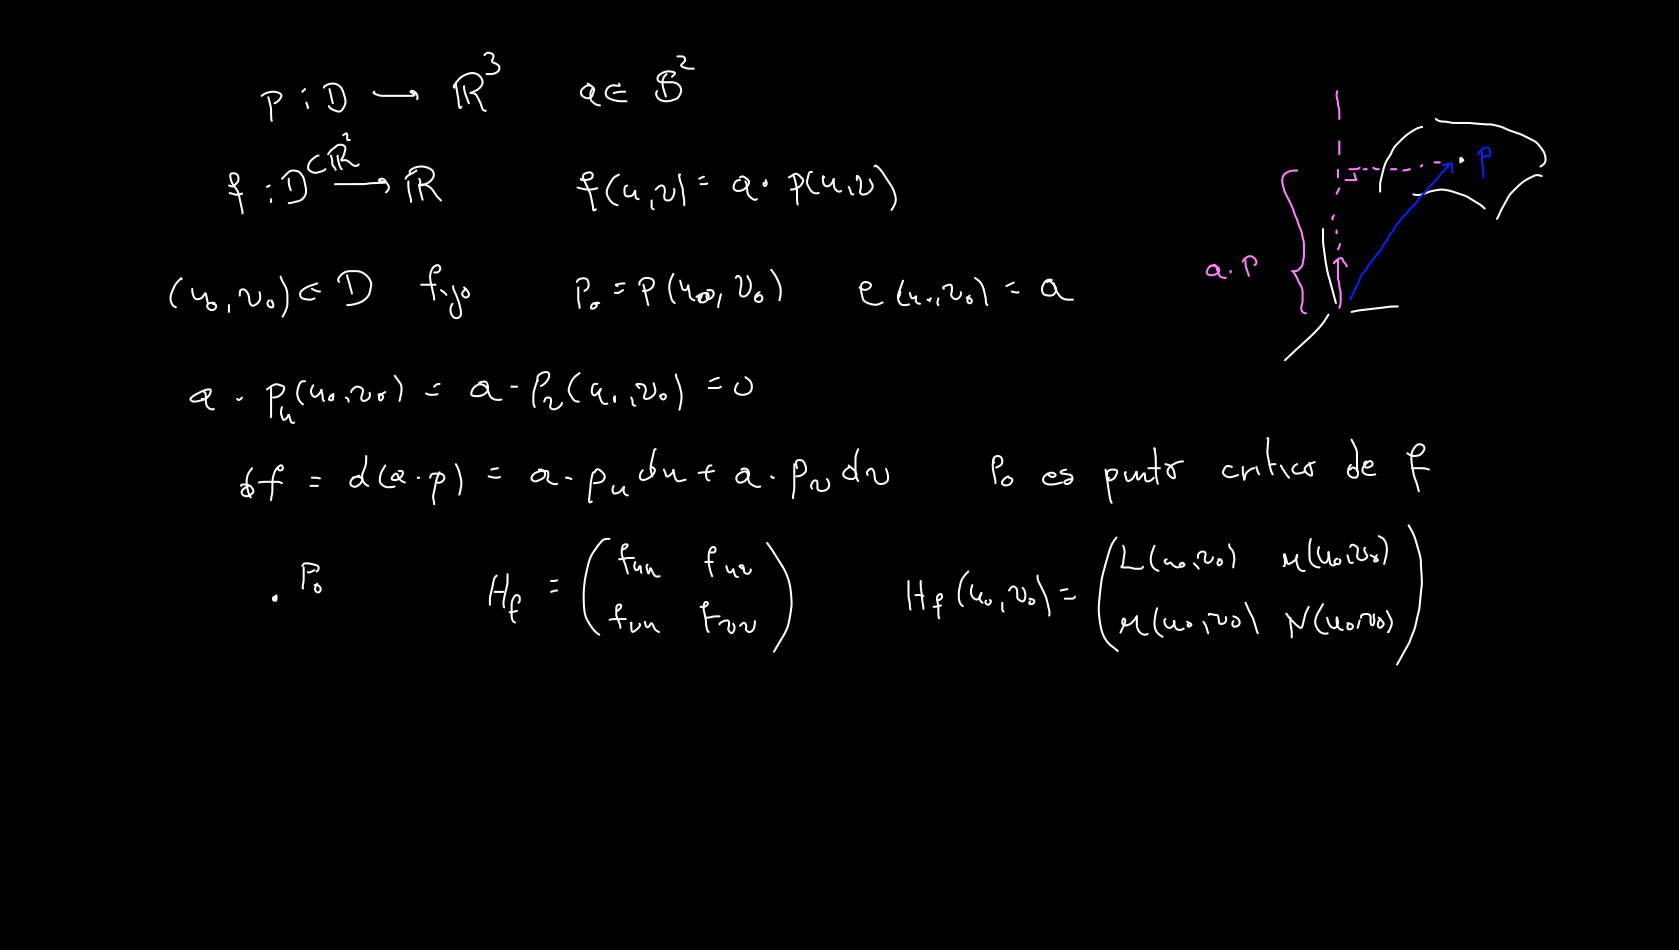 p : D → ℝ³ a ∈ S²
f : D ⊂ ℝ² → ℝ f(u,v) = a · p(u,v)
(u₀,v₀) ∈ D fijo p₀ = p(u₀,v₀) e(u₀,v₀) = a
a · p_u(u₀,v₀) = a · p_v(u₀,v₀) = 0
df = d(a·p) = a · p_u du + a · p_v dv p₀ es punto critico de f
· p₀ H_f = ( f_uu f_uv
f_vu f_vv )
H_f(u₀,v₀) = ( L(u₀,v₀) M(u₀,v₀)
M(u₀,v₀) N(u₀,v₀) )
p
a · p